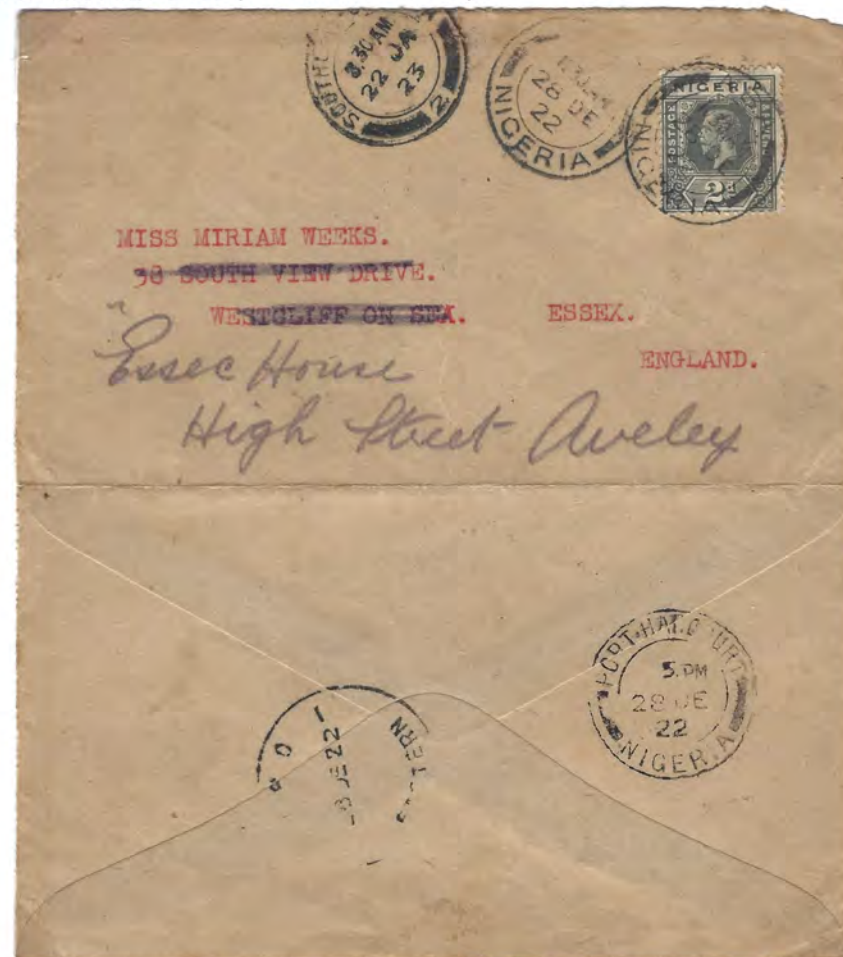 8.30 AM
22 JA
23
2
28 DE
22
NIGERIA
NIGERIA
POSTAGE
2d
NIGERIA
MISS MIRIAM WEEKS.
38 SOUTH VIEW DRIVE.
WESTCLIFF ON SEA. ESSEX.
ENGLAND.
Essec House
High Street Aveley
PORT HARCOURT
5. PM
28 DE
22
NIGERIA